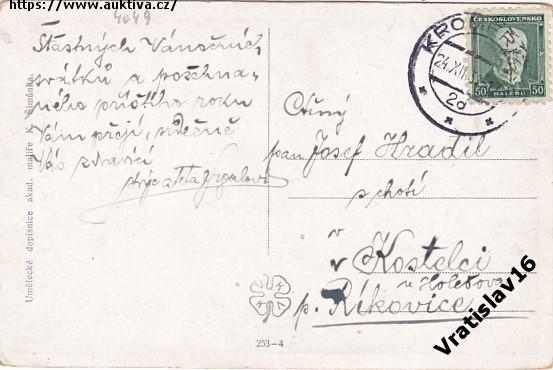 https://www.auktiva.cz/
4049
Šťastných Vánočních
svátků a požehna-
ného příštího roku
Vám přejí, srdečně
Vás zdravící
strýc a teta
Umělecké dopisnice akad. malíře K. Šimůnka.
253-4
KROMĚŘÍŽ
24.XII.
2d
ČESKOSLOVENSKO
50 50
HALÉŘŮ
Ctěný
pan Josef Hradil
s chotí
v
v Kostelci
u Holešova
p. Říkovice
Vratislav16